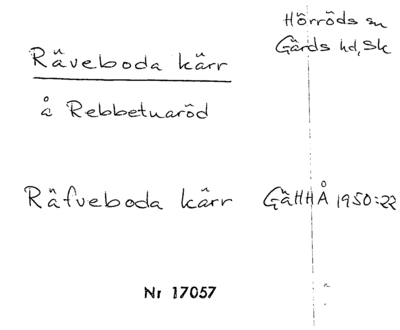 Hörröds sn
Gärds hd, Sk
Räveboda kärr
å Rebbetuaröd
Räfveboda kärr GäHHÅ 1950:22
Nr 17057